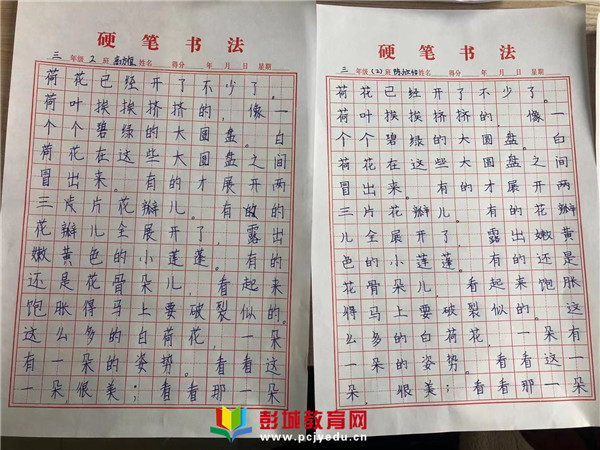 硬笔书法
三 年级 2 班 姓名 得分 年 月 日 星期
荷花已经开了不少了。
荷叶挨挨挤挤的,像一
个个碧绿的大圆盘。白
荷花在这些大圆盘之间
冒出来。有的才展开两
三片花瓣儿。有的的
花瓣儿全展开了,露出
嫩黄色的小莲蓬。有的
还是花骨朵儿,看起来
饱胀得马上要破裂似的。
这么多的白荷花,一朵
有一朵的姿势。看看这
一朵,很美;看看那一朵
硬笔书法
三 年级 (2) 班 姓名 得分 年 月 日 星期
荷花已经开了不少了。
荷叶挨挨挤挤的,像一
个个碧绿的大圆盘。白
荷花在这些大圆盘之间
冒出来。有的才展开两
三片花瓣儿。有的花瓣
儿全展开了,露出嫩黄
色的小莲蓬。有的还是
花骨朵儿,看起来饱胀
得马上要破裂似的。这
么多的白荷花,一朵有
一朵的姿势。看看这一
朵,很美;看看那一朵
彭城教育网
www.pcjyedu.cn